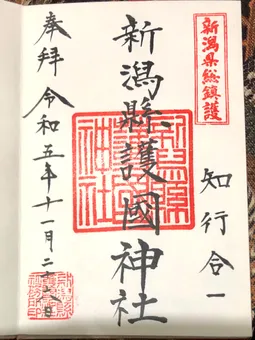 新潟県総鎮護
知行合一
新潟縣護國神社
奉拝 令和五年十一月二十六日